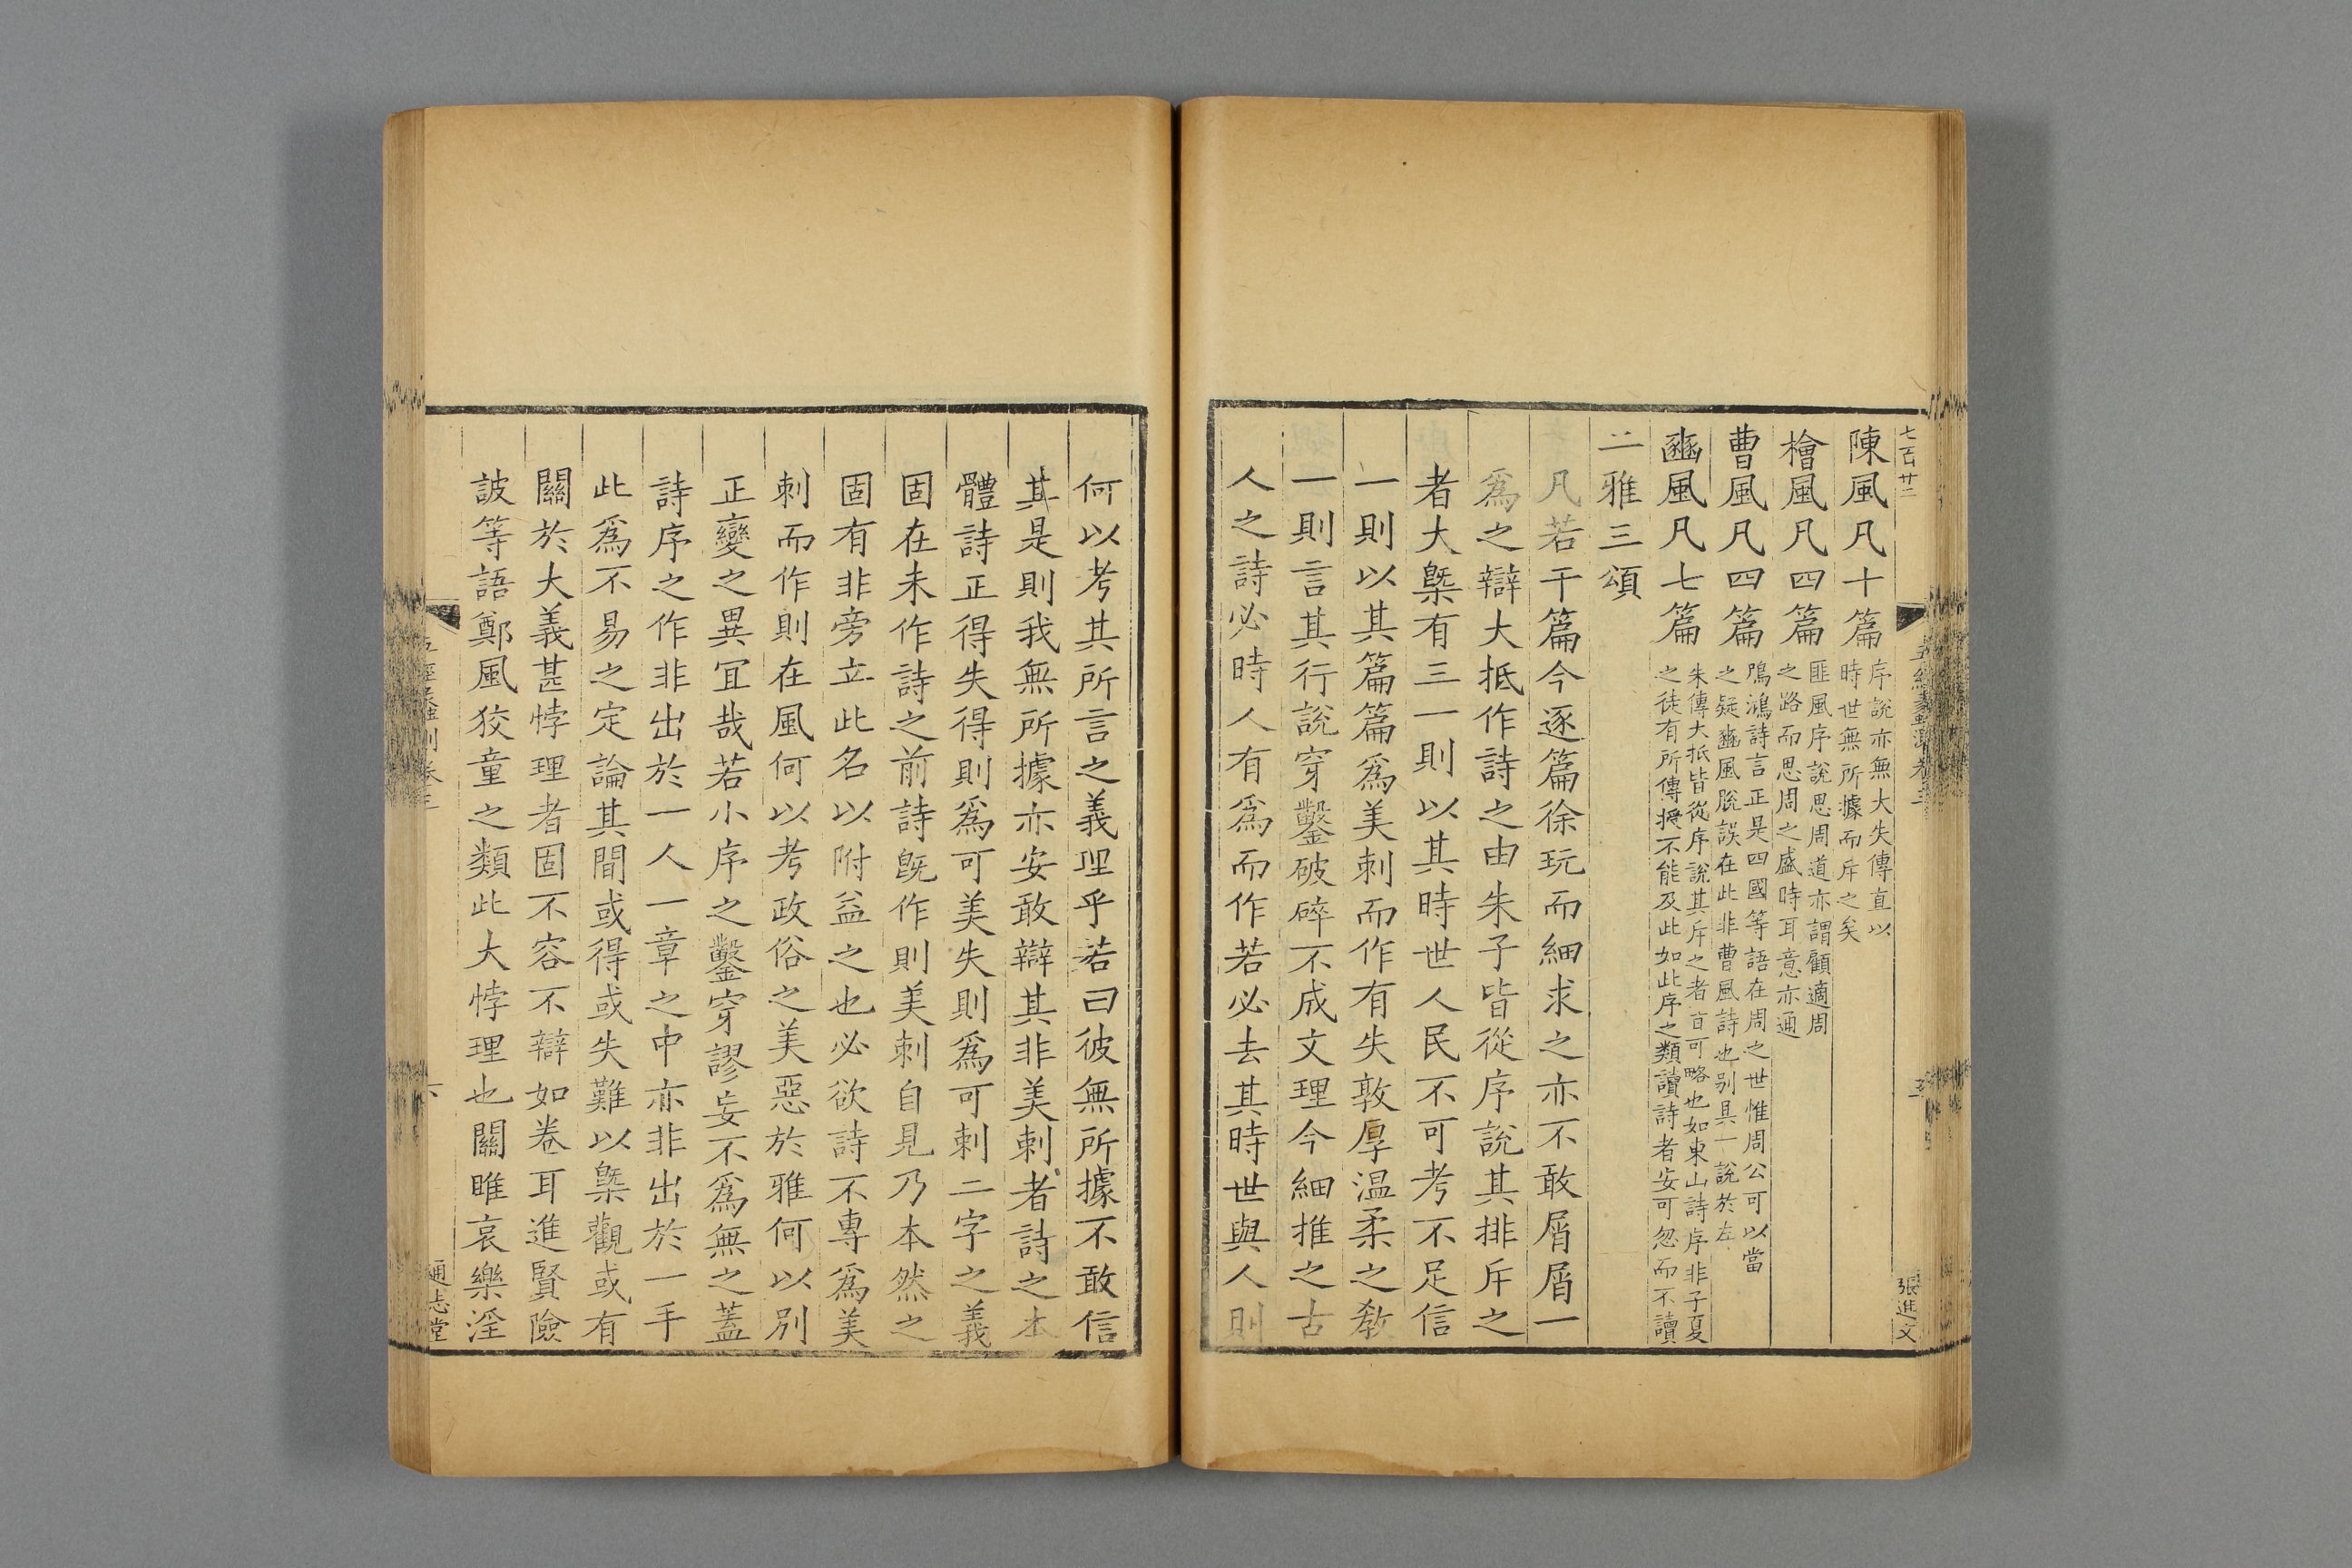 七百廿二
張進文
陳風凡十篇
序說亦無大失傳直以
時世無所據而斥之矣
檜風凡四篇
匪風序說思周道亦謂顧適周
之路而思周之盛時耳意亦通
曹風凡四篇
鳲鳩詩言正是四國等語在周之世惟周公可以當
之疑豳風脫誤在此非曹風詩也别具一說於左
豳風凡七篇
朱傳大抵皆從序說其斥之者亦可略也如東山詩序非子夏
之徒有所傳授不能及此如此序之類讀詩者安可忽而不讀
二雅三頌
凡若干篇今逐篇徐玩而細求之亦不敢屑屑一
爲之辯大抵作詩之由朱子皆從序說其排斥之
者大槩有三一則以其時世人民不可考不足信
一則以其篇篇爲美刺而作有失敦厚温柔之教
一則言其行說穿鑿破碎不成文理今細推之古
人之詩必時人有爲而作若必去其時世與人則
何以考其所言之義理乎若曰彼無所據不敢信
其是則我無所據亦安敢辯其非美刺者詩之本
體詩正得失得則爲可美失則爲可刺二字之義
固在未作詩之前詩旣作則美刺自見乃本然之
固有非旁立此名以附益之也必欲詩不專爲美
刺而作則在風何以考政俗之美惡於雅何以別
正變之異宜哉若小序之鑿穿謬妄不爲無之蓋
詩序之作非出於一人一章之中亦非出於一手
此爲不易之定論其間或得或失難以槩觀或有
關於大義甚悖理者固不容不辯如卷耳進賢險
詖等語鄭風狡童之類此大悖理也關雎哀樂淫
通志堂